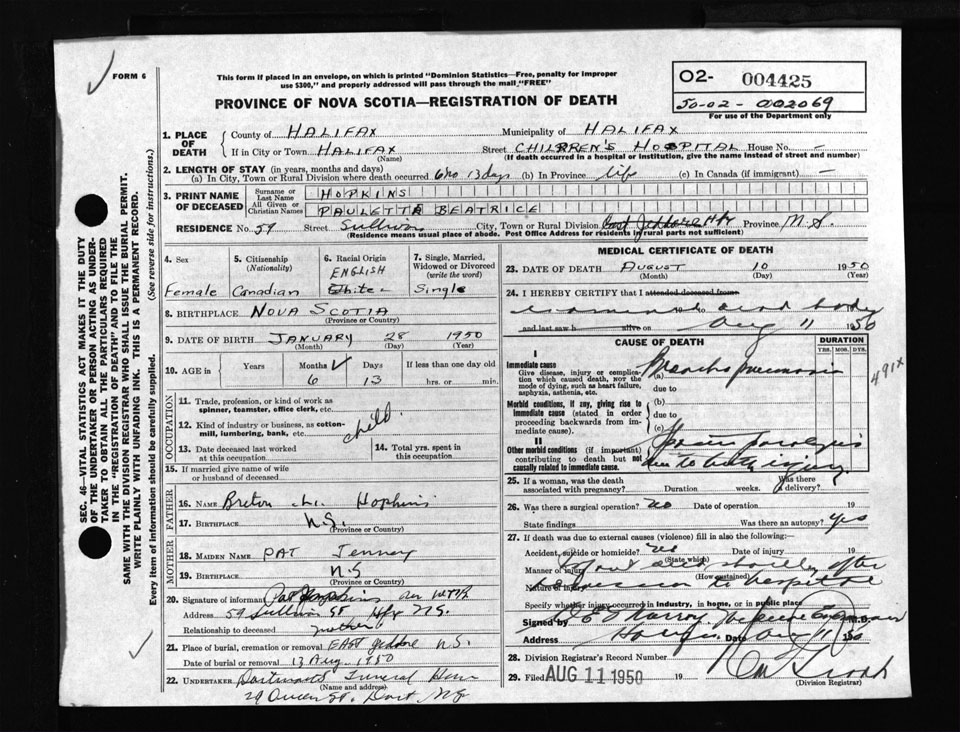 FORM 6
This form if placed in an envelope, on which is printed "Dominion Statistics—Free, penalty for improper
use $300," and properly addressed will pass through the mail "FREE"
PROVINCE OF NOVA SCOTIA—REGISTRATION OF DEATH
O2- 004425
50-02-002069
For use of the Department only
SEC. 46—VITAL STATISTICS ACT MAKES IT THE DUTY
OF THE UNDERTAKER OR PERSON ACTING AS UNDER-
TAKER TO OBTAIN ALL THE PARTICULARS REQUIRED
IN THE "REGISTRATION OF DEATH" AND TO FILE THE
SAME WITH THE DIVISION REGISTRAR WHO SHALL ISSUE THE BURIAL PERMIT.
WRITE PLAINLY WITH UNFADING INK. THIS IS A PERMANENT RECORD.
Every item of information should be carefully supplied. (See reverse side for instructions.)
1. PLACE OF DEATH
County of HALIFAX Municipality of HALIFAX
If in City or Town HALIFAX Street CHILDREN'S HOSPITAL House No. —
(Name) (If death occurred in a hospital or institution, give the name instead of street and number)
2. LENGTH OF STAY (in years, months and days)
(a) In City, Town or Rural Division where death occurred 6 mo 13 days (b) In Province life (c) In Canada (if immigrant) —
3. PRINT NAME OF DECEASED
Surname or Last Name HOPKINS
All Given or Christian Names PAULETTA BEATRICE
RESIDENCE No. 59 Street Sullivan City, Town or Rural Division East Province N.S.
(Residence means usual place of abode. Post Office Address for residents in rural parts not sufficient)
4. Sex Female
5. Citizenship (Nationality) Canadian
6. Racial Origin ENGLISH White
7. Single, Married, Widowed or Divorced (write the word) Single
8. BIRTHPLACE NOVA SCOTIA
(Province or Country)
9. DATE OF BIRTH JANUARY 28 1950
(Month) (Day) (Year)
10. AGE in Years Months Days If less than one day
6 13 hrs. or min.
OCCUPATION
11. Trade, profession, or kind of work as spinner, teamster, office clerk, etc.
12. Kind of industry or business, as cotton-mill, lumbering, bank, etc. child
13. Date deceased last worked at this occupation
14. Total yrs. spent in this occupation
15. If married give name of wife or husband of deceased
FATHER
16. NAME Hopkins
17. BIRTHPLACE N.S.
(Province or Country)
MOTHER
18. MAIDEN NAME PAT
19. BIRTHPLACE N.S
(Province or Country)
20. Signature of informant Pat Hopkins
Address 59 Sullivan ST Hfx N.S.
Relationship to deceased mother
21. Place of burial, cremation or removal EAST N.S.
Date of burial or removal 13 Aug. 1950
22. UNDERTAKER Dartmouth Funeral Home
(Name and address)
29 Queen St. Dart. N.S
MEDICAL CERTIFICATE OF DEATH
23. DATE OF DEATH AUGUST 10 1950
(Month) (Day) (Year)
24. I HEREBY CERTIFY that I attended deceased from
examined dead body
and last saw h alive on Aug 11 1950
CAUSE OF DEATH
DURATION
YRS. MOS. DYS.
I
Immediate cause
Give disease, injury or complication which caused death, not the mode of dying, such as heart failure, asphyxia, asthenia, etc.
(a) Broncho pneumonia
due to
491X
Morbid conditions, if any, giving rise to immediate cause (stated in order proceeding backwards from immediate cause).
(b)
due to
(c)
II
Other morbid conditions (if important) contributing to death but not causally related to immediate cause.
paralysis
due to birth injury
25. If a woman, was the death associated with pregnancy? Duration weeks. Was there a delivery?
26. Was there a surgical operation? no Date of operation 19
State findings Was there an autopsy? yes
27. If death was due to external causes (violence) fill in also the following:—
Accident, suicide or homicide? no Date of injury 19
(State which)
Manner of injury shortly after
(How sustained)
Nature of injury admission to hospital
Specify whether injury occurred in industry, in home, or in public place
Signed by M.D.
Address Date Aug 11 1950
28. Division Registrar's Record Number
29. Filed AUG 11 1950 19
(Division Registrar)